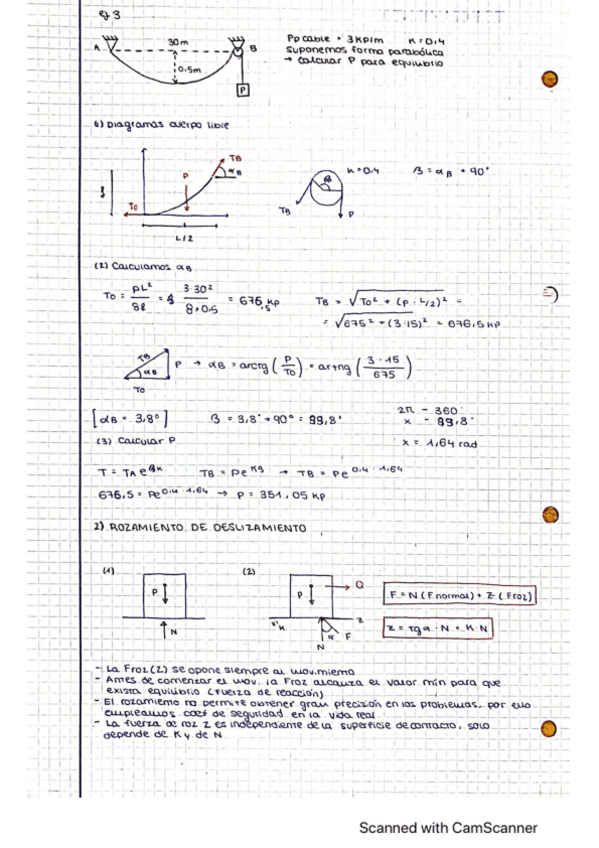 ej 3
Pp cable = 3kp/m K=0,4
suponemos forma parabólica
→ calcular P para equilibrio
A 30m B
0,5m
P
(1) Diagramas cuerpo libre
TB
αB
P
To
L/2
K=0,4 β = αB + 90°
TB P
(2) Calculamos αB
To = pL²/8f = 3·30²/8·0,5 = 675 kp TB = √To² + (p·L/2)² =
= √675² + (3·15)² = 676,5 kp
TB αB P → αB = arctg (P/To) = artng (3·15/675)
To
[αB = 3,8°] β = 3,8° + 90° = 99,8° 2π - 360°
x - 99,8°
(3) Calcular P x = 1,64 rad
TB = Pe^Kβ → TB = Pe^0,4·1,64
676,5 = Pe^0,4·1,64 → P = 351,05 kp
2) ROZAMIENTO DE DESLIZAMIENTO
(1) (2)
P P Q F = N (Fnormal) + Z (Froz)
N N α F Z Z = tgα · N = K·N
- La Froz(Z) se opone siempre al movimiento
- Antes de comenzar el mov. la Froz alcanza el valor mín para que
exista equilibrio (fuerza de reacción)
- El rozamiento no permite obtener gran precisión en los problemas, por ello
empleamos coef de seguridad en la vida real
- La fuerza de roz Z es independiente de la superficie de contacto, solo
depende de K y de N
Scanned with CamScanner